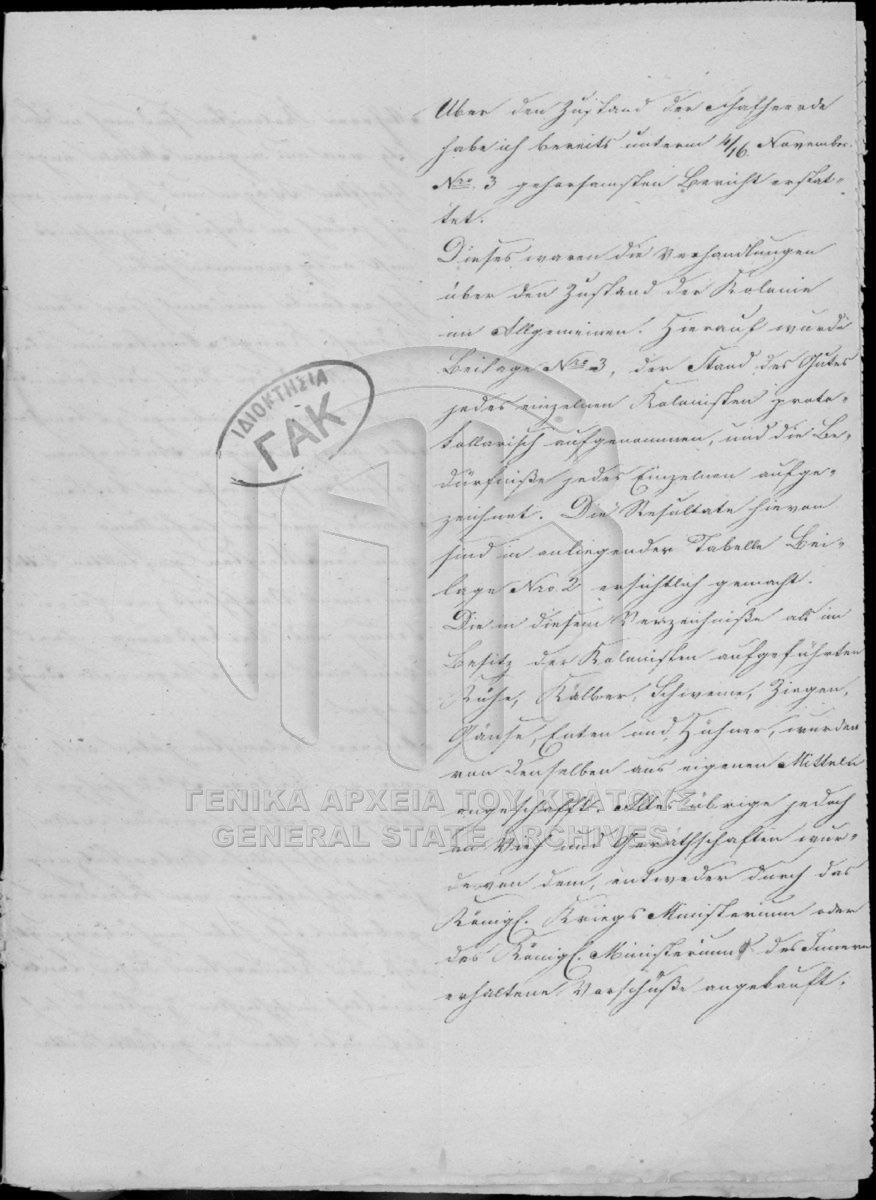 Über den Zustand der Schafheerde
habe ich bereits unterm 4/16 November
Nro. 3 gehorsamsten Bericht erstat-
tet.
Dieses waren die Verhandlungen
über den Zustand der Kolonie
im Allgemeinen. Hierauf wurde
Beilage Nro 3, der Stand des Gutes
jedes einzelnen Kolonisten proto-
kollarisch aufgenommen, und die Be-
dürfniße jedes Einzelnen aufge-
zeichnet. Die Resultate hievon
sind in anliegender Tabelle Bei-
lage Nro. 2 ersichtlich gemacht.
Die in diesem Verzeichniße als im
Besitz der Kolonisten aufgeführten
Kühe, Kälber, Schweine, Ziegen,
Gänse, Enten und Hühner, wurden
von denselben aus eigenen Mitteln
angeschafft. Alles übrige jedoch
an Vieh und Geräthschaften wur-
de von dem, entweder durch das
Königl. Kriegs Ministerium oder
das Königl. Ministerium des Innern
erhaltene Vorschüße angekauft.
ΙΔΙΟΚΤΗΣΙΑ
ΓΑΚ
ΓΕΝΙΚΑ ΑΡΧΕΙΑ ΤΟΥ ΚΡΑΤΟΥΣ
GENERAL STATE ARCHIVES